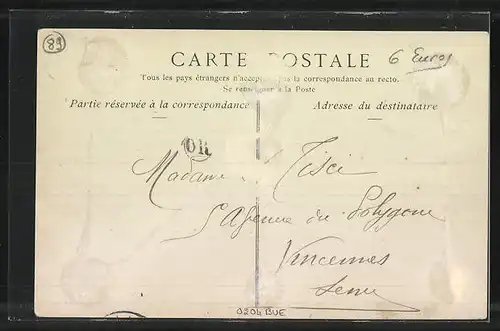 89
CARTE POSTALE
6 Euros
Tous les pays étrangers n'acceptent pas la correspondance au recto.
Se renseigner à la Poste
Partie réservée à la correspondance
Adresse du destinataire
OR
Madame Tisci
5 Avenue du Polygone
Vincennes
Seine
0204 BUE